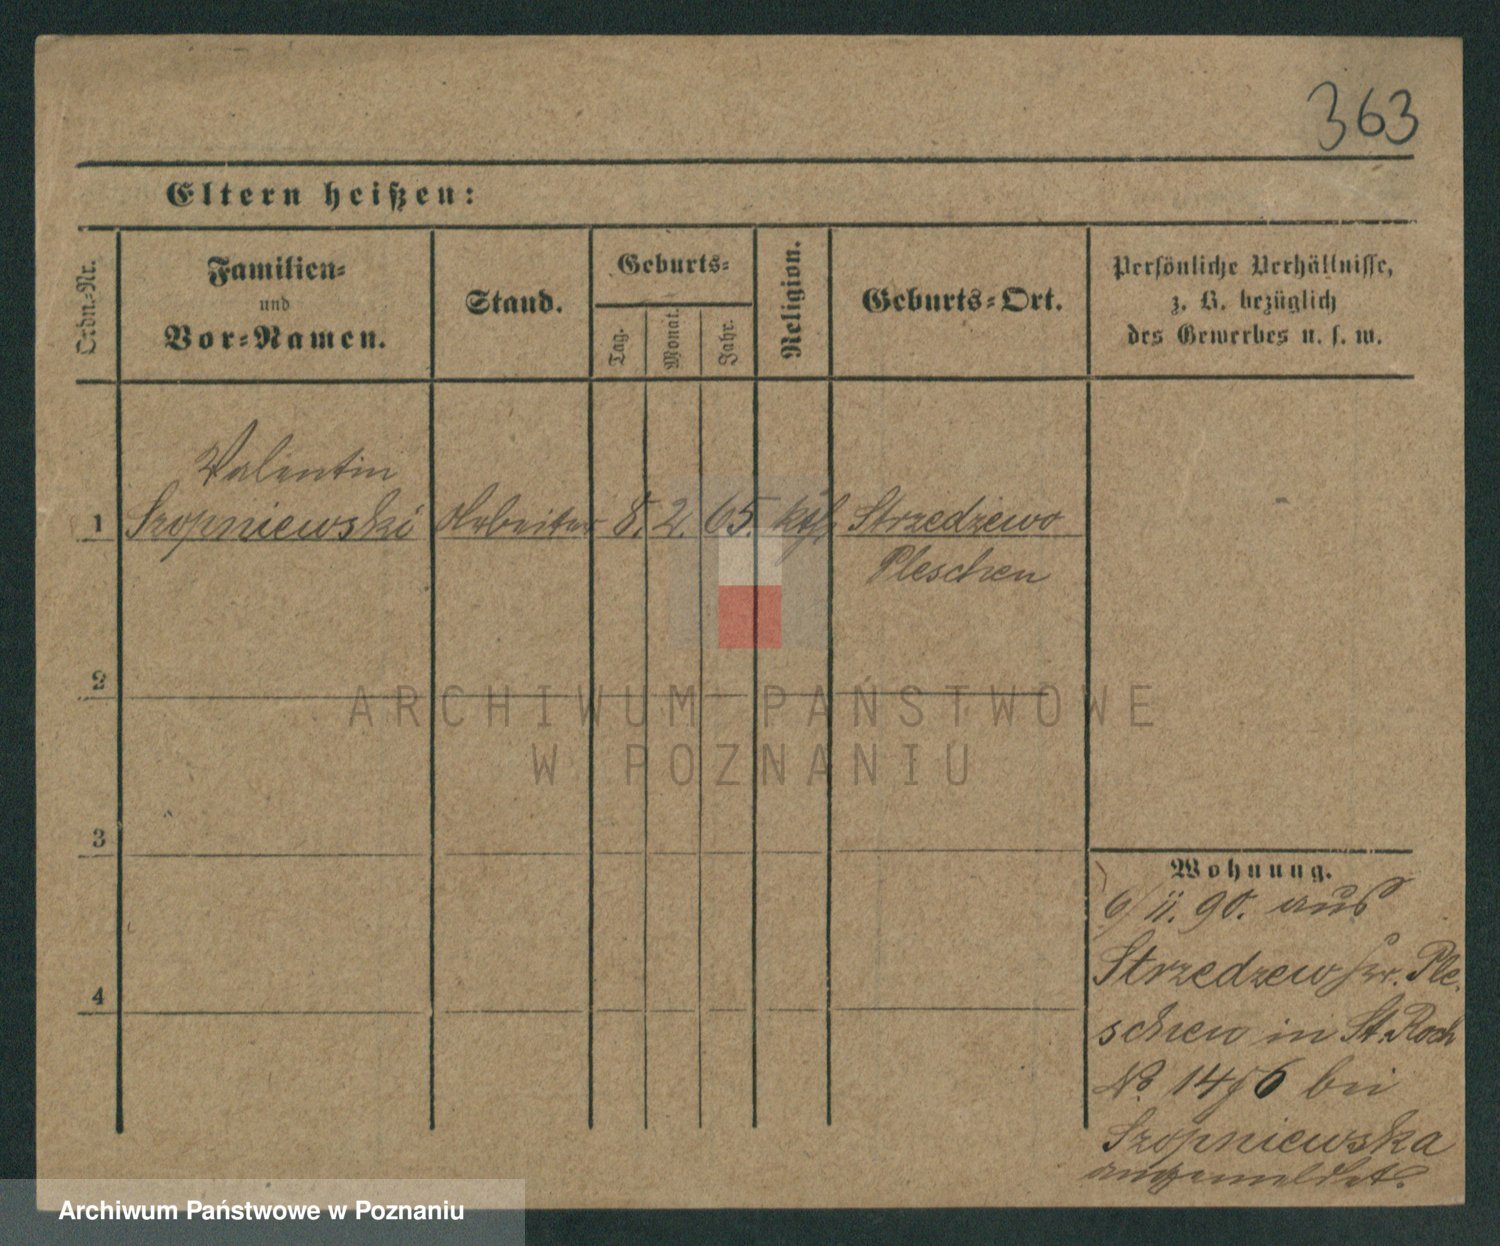 363
Eltern heißen:
Ordn.-Nr.
Familien-
und
Vor-Namen.
Stand.
Geburts-
Tag.
Monat.
Jahr.
Religion.
Geburts-Ort.
Persönliche Verhältnisse,
z. B. bezüglich
des Gewerbes u. s. w.
Valentin
1 Szopniewski Arbeiter 8. 2. 65. ktl. Strzedzewo
Pleschen
2
3
4
ARCHIWUM PAŃSTWOWE
W POZNANIU
Wohnung.
6/ii. 90. aus
Strzedzew Ple-
schen in St. Roch
No 14 6 bei
Szopniewska
angemeldet.
Archiwum Państwowe w Poznaniu